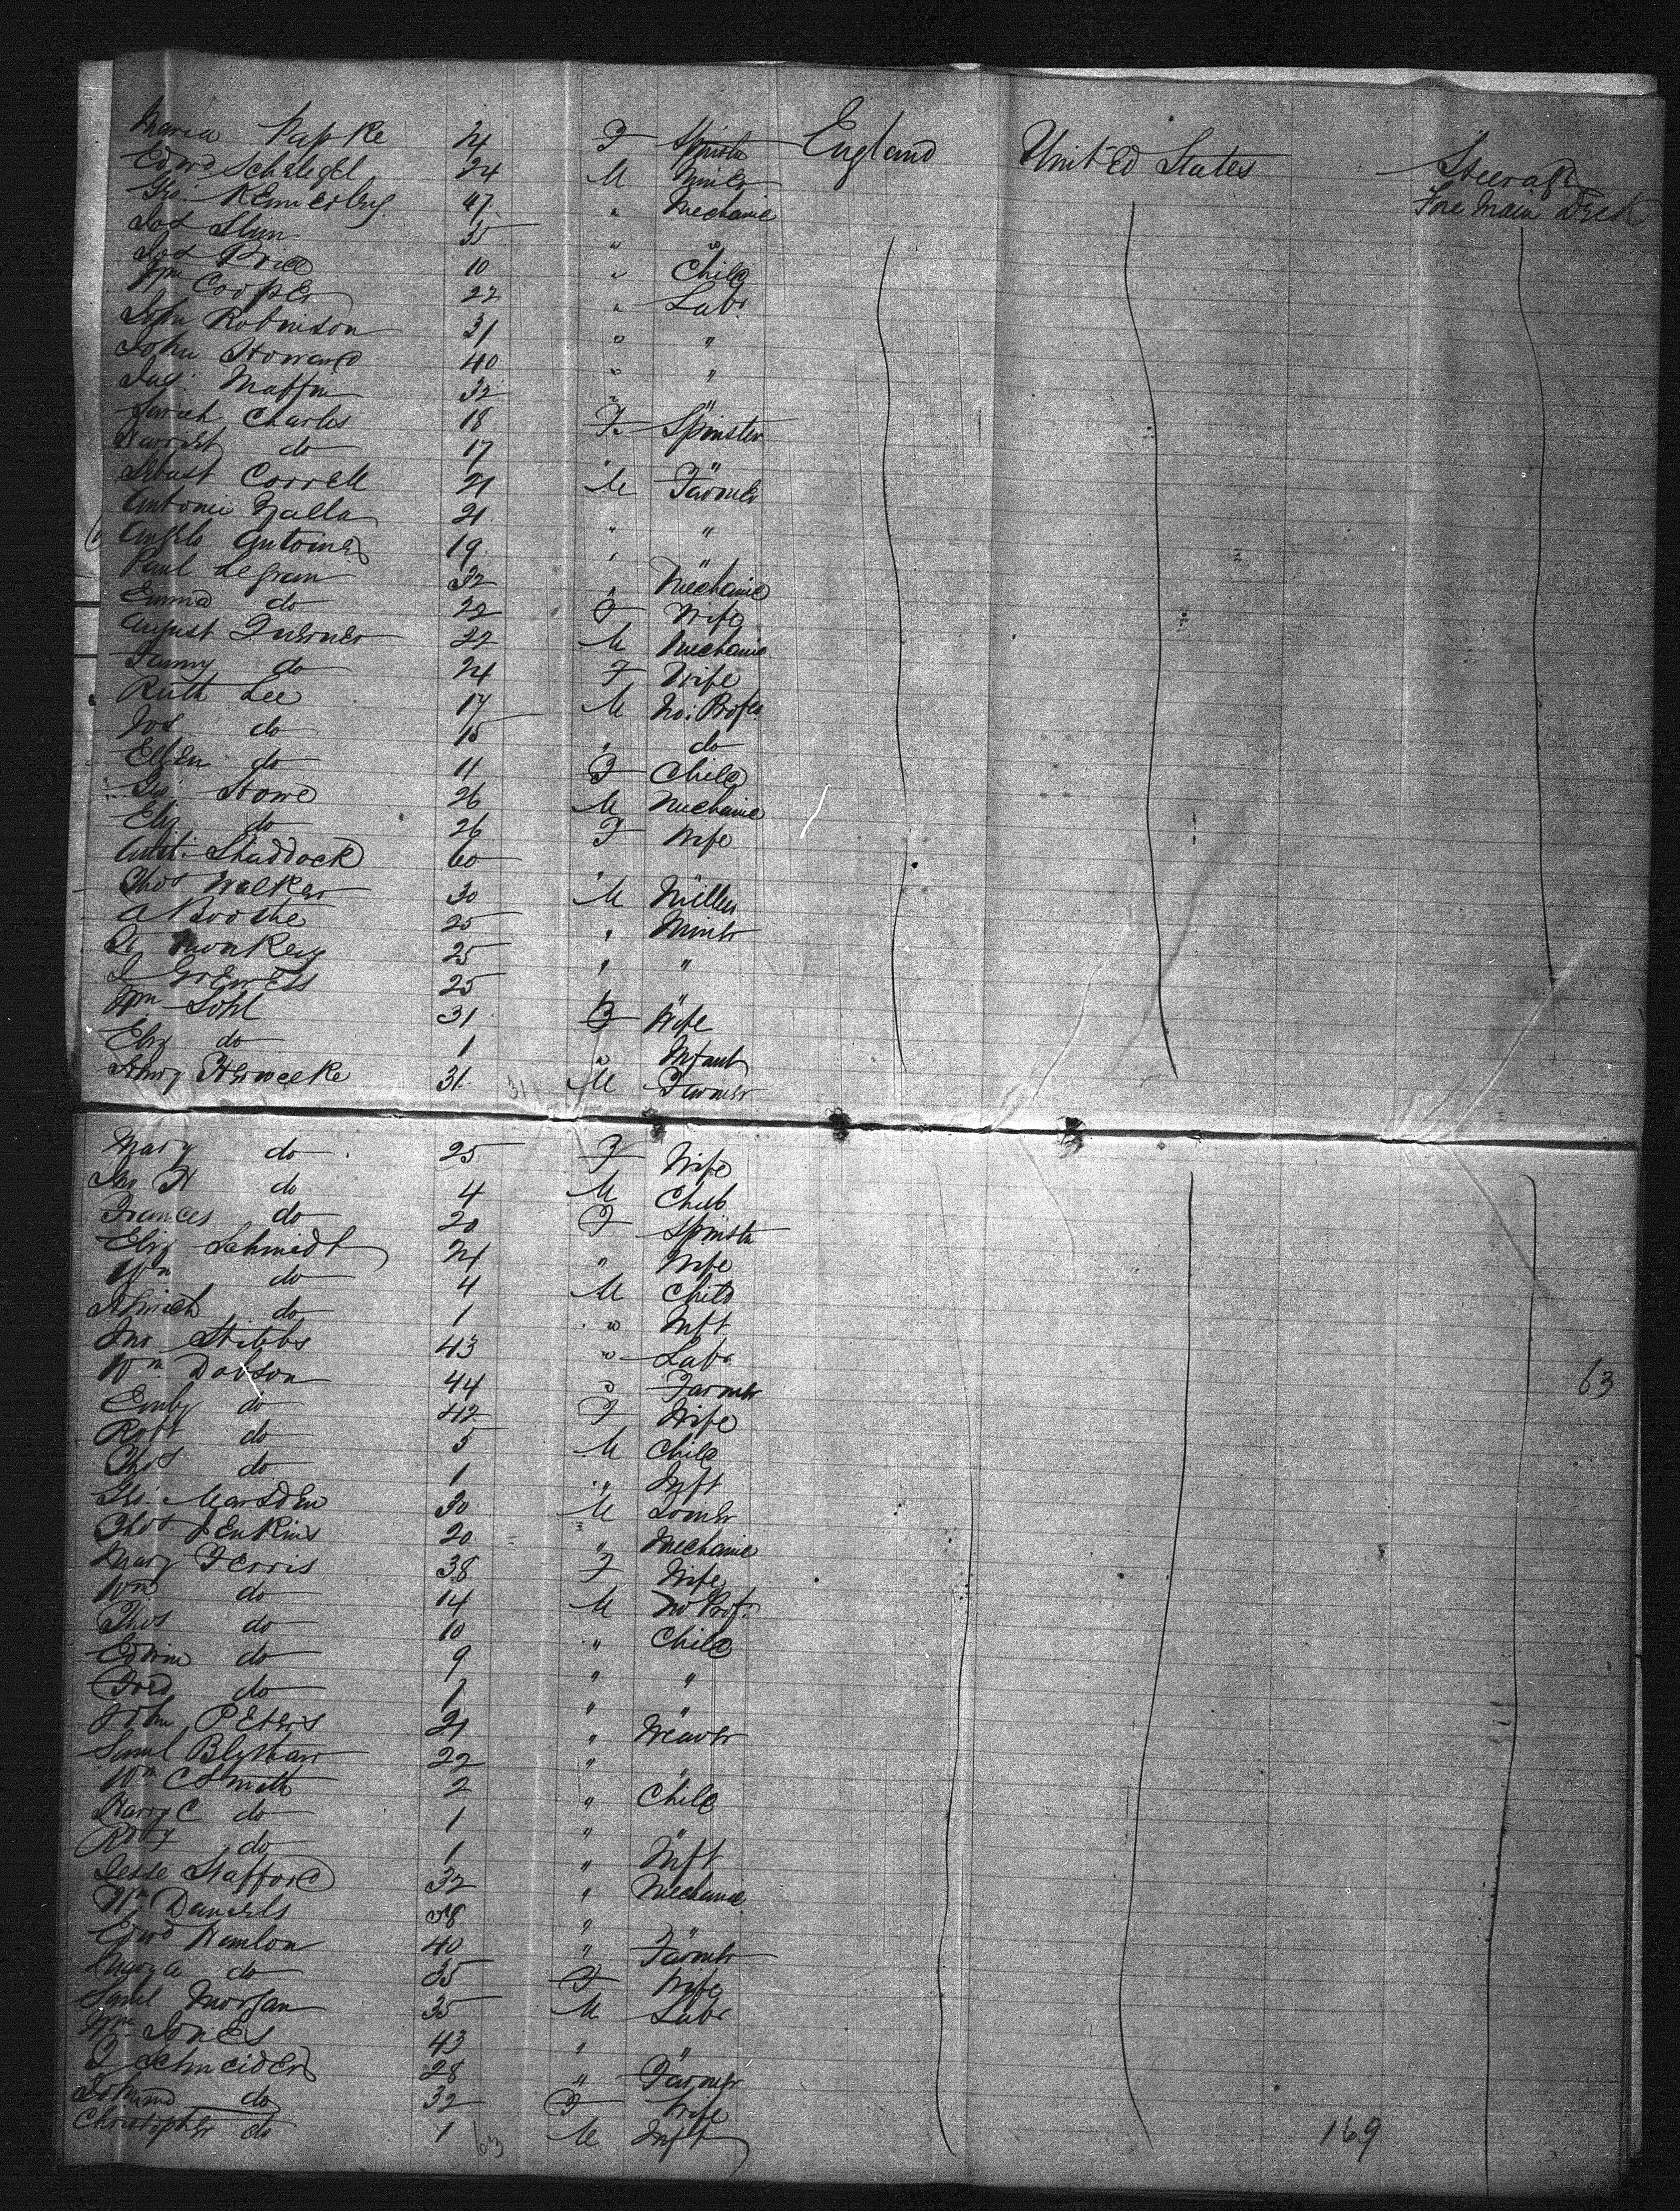 Maria Papke 24 F Spinstr England United States Steerage
Edwd Schlegel 24 M Miner Fore Main Deck
Geo. Kennerley 47 " Mechanic
Jos Slum 35 " "
Jos Price 10 " Child
Wm Cooper 22 " Labr
John Robinson 31 " "
John Howard 40 " "
Jas. Maffin 32 " "
Sarah Charles 18 F Spinster
Harriet do 17 " "
Sebast Correll 21 M Farmer
Antonio Zalla 21 " "
Angelo Antoines 19 " "
Paul Legran 32 " Mechanic
Emma do 22 F Wife
August Querner 22 M Mechanic
Fanny do 24 F Wife
Ruth Lee 17 M No. Profes
Jos do 15 " do
Ellen do 11 F Child
Geo. Stowe 26 M Mechanic
Eliz do 26 F Wife
Shaddock 60 " "
Thos Walker 30 M Miller
A Boothe 25 " Miner
25 " "
25 " "
Wm Sohl 31 F Wife
Eliz do 1 " Infant
31 M Farmer
31
Mary do 25 F Wife
Jno H do 4 M Child
Frances do 20 F Spinstr
Eliz Schmidt 24 " Wife
Wm do 4 M Child
do 1 " Inft
Jno Stibbs 43 " Labr
Wm Dobson 44 " Farmer 63
Emly do 42 F Wife
Robt do 5 M Child
Thos do 1 " Inft
Geo. Marsden 30 M Joiner
Thos Jenkins 20 " Mechanic
Mary Ferris 38 F Wife
Wm do 14 M No Prof.
Thos do 10 " Child
Edwin do 9 " "
Fred do 7 " "
John Peters 21 " Weaver
Saml Blyshaw 22 " "
Wm C Smith 2 " Child
Harry C do 1 " "
do 1 " Inft
Jesse Stafford 32 " Mechanic
Wm Daniels 38 " "
Edwd Hanlon 40 " Farmer
Mary A do 35 F Wife
Saml Morgan 35 M Labr
Wm Jones 43 " "
F Schneider 28 " Farmer
do 32 F Wife
Christopher do 1 M Inft
63 169